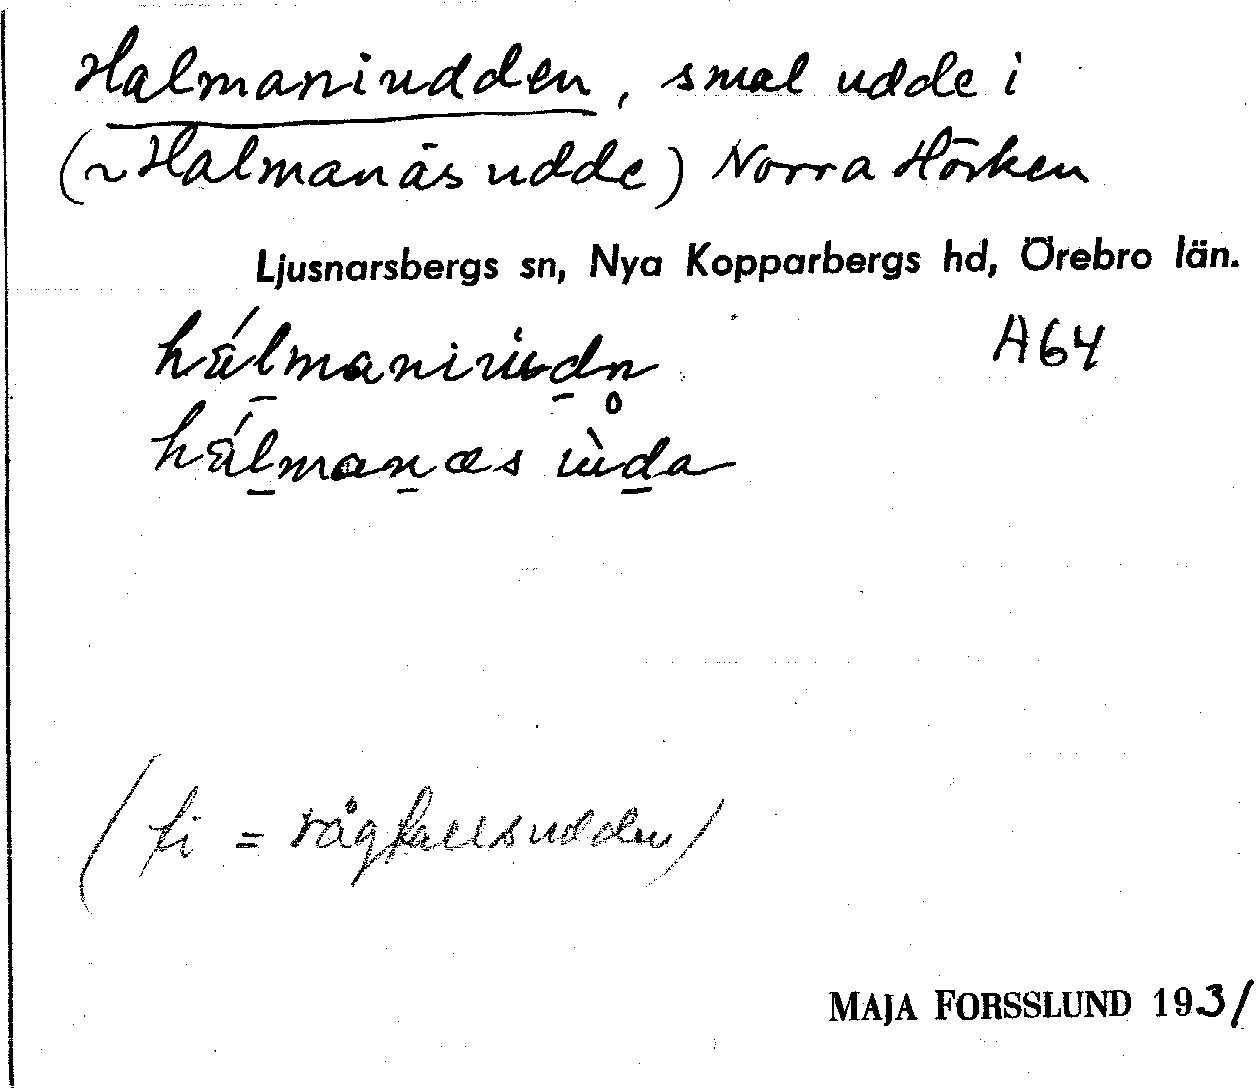 Halmaniudden, smal udde i
(~ Halmanäs udde) Norra Hörken
Ljusnarsbergs sn, Nya Kopparbergs hd, Örebro län.
hálmaniùdn̥ A64
hálmanæs ùda
(fi = rågfallsudden)
MAJA FORSSLUND 1931